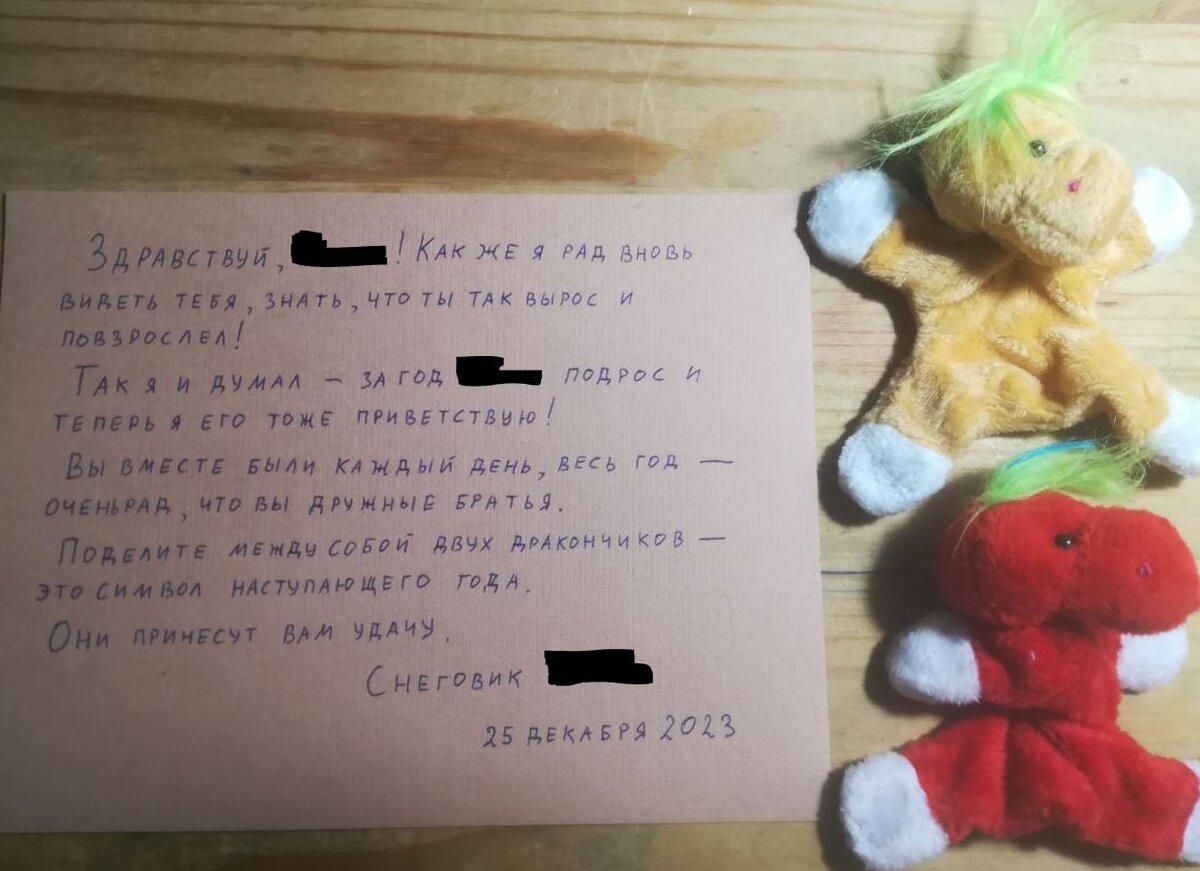 Здравствуй, ! Как же я рад вновь
видеть тебя, знать, что ты так вырос и
повзрослел!
Так я и думал – за год подрос и
теперь я его тоже приветствую!
Вы вместе были каждый день, весь год —
очень рад, что вы дружные братья.
Поделите между собой двух дракончиков —
это символ наступающего года.
Они принесут вам удачу.
Снеговик
25 декабря 2023